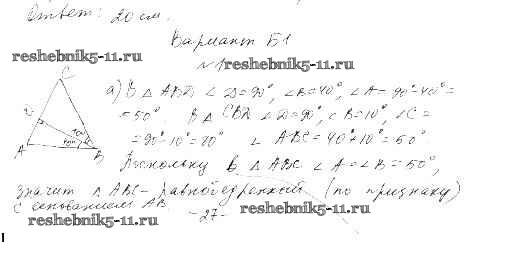 Ответ: 20 см.
Вариант Б1
reshebnik5-11.ru
№1 reshebnik5-11.ru
C
D
A
B
а) В △ ABD ∠D=90°, ∠B=40°, ∠A=90°-40°=
=50°. В △ CBD ∠D=90°, ∠B=10°, ∠C=
=90°-10°=80° ∠ABC=40°+10°=50°
Поскольку в △ABC ∠A=∠B=50°,
значит △ABC- равнобедренный (по признаку)
с основанием AB.
-27-
reshebnik5-11.ru
reshebnik5-11.ru